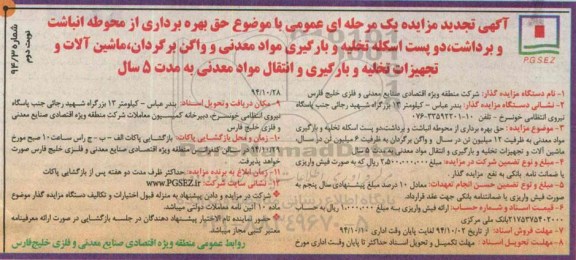 آگهی تجدید مزایده یک مرحله ای عمومی با موضوع حق بهره برداری از محوطه انباشت
و برداشت،دو پست اسکله تخلیه و بارگیری مواد معدنی و واگن برگردان،ماشین آلات و
تجهیزات تخلیه و بارگیری و انتقال مواد معدنی به مدت ۵ سال
شماره ۹۴/۳
نوبت دوم
P.G.S.E.Z
۱- نام دستگاه مزایده گذار: شرکت منطقه ویژه اقتصادی صنایع معدنی و فلزی خلیج فارس
۲- نشانی دستگاه مزایده گذار: بندر عباس - کیلومتر ۱۳ بزرگراه شهید رجائی جنب پاسگاه
نیروی انتظامی خونسرخ - تلفن ۱۰-۰۷۶-۳۳۵۹۲۲۰۱
۳- موضوع مزایده: حق بهره برداری از محوطه انباشت و برداشت،دو پست اسکله تخلیه و بارگیری
مواد معدنی به ظرفیت ۱۲ میلیون تن در سال و واگن برگردان به ظرفیت ۵ میلیون تن در سال،
ماشین آلات و تجهیزات تخلیه و بارگیری و انتقال مواد معدنی به مدت ۵ سال
۴- مبلغ و نوع تضمین شرکت در مزایده: مبلغ ۲،۵۰۰،۰۰۰،۰۰۰ ریال که به صورت فیش واریزی
یا ضمانت نامه بانکی به نفع مزایده گذار
۵- مبلغ و نوع تضمین حسن انجام تعهدات: معادل ۱۰ درصد مبلغ پیشنهادی سال پنجم به
صورت واریز نقدی یا ضمانتنامه بانکی جهت عقد قرارداد.
۶- قیمت اسناد و شماره حساب: ارائه فیش واریزی به مبلغ ۱،۰۰۰،۰۰۰ ریال به حساب
۲۱۷۵۳۷۵۴۰۲۰۰۰ بانک ملی مرکزی
۷- مهلت فروش اسناد: از تاریخ ۹۴/۱۰/۰۲ لغایت پایان وقت اداری ۹۴/۱۰/۱۰
۸- مهلت تحویل اسناد: مهلت تکمیل و تحویل اسناد حداکثر تا پایان وقت اداری مورخ
۹۴/۱۰/۲۸
۹- مکان دریافت و تحویل اسناد: بندر عباس - کیلومتر ۱۳ بزرگراه شهید رجائی جنب پاسگاه
نیروی انتظامی خونسرخ، دبیرخانه کمیسیون معاملات شرکت منطقه ویژه اقتصادی صنایع معدنی
و فلزی خلیج فارس
۱۰- زمان و محل بازگشایی پاکات: بازگشایی پاکات الف - ب - ج راس ساعت ۱۰ صبح مورخ
در محل سالن کنفرانس منطقه ویژه اقتصادی صنایع معدنی و فلزی خلیج فارس صورت
خواهد پذیرفت.
۱۱- زمان ابلاغ به برنده مزایده: حداکثر ظرف مدت دو هفته پس از بازگشایی پاکات
۱۲- نشانی سایت شرکت: www.PGSEZ.ir
شرکت در مزایده و دادن پیشنهاد به منزله قبول اختیارات و تکالیف دستگاه مزایده گذار موضوع
ماده ۱۰ آئین نامه معاملات دولتی میباشد.
حضور نماینده تام الاختیار پیشنهاد دهندگان در جلسه بازگشایی در صورت ارائه معرفینامه
معتبر کتبی مجاز میباشد.
روابط عمومی منطقه ویژه اقتصادی صنایع معدنی و فلزی خلیج‌فارس